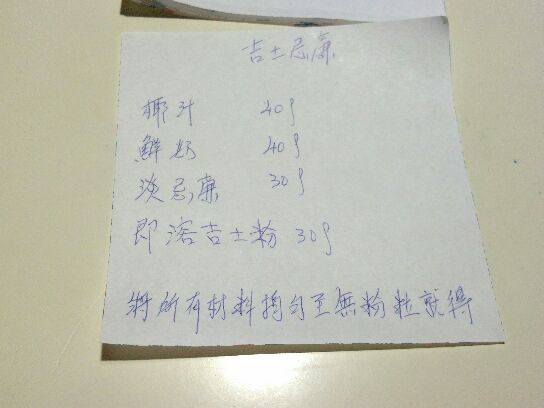 吉士忌廉
椰汁 40g
鮮奶 40g
淡忌廉 30g
即溶吉士粉 30g
將所有材料搗勻至無粉粒就得